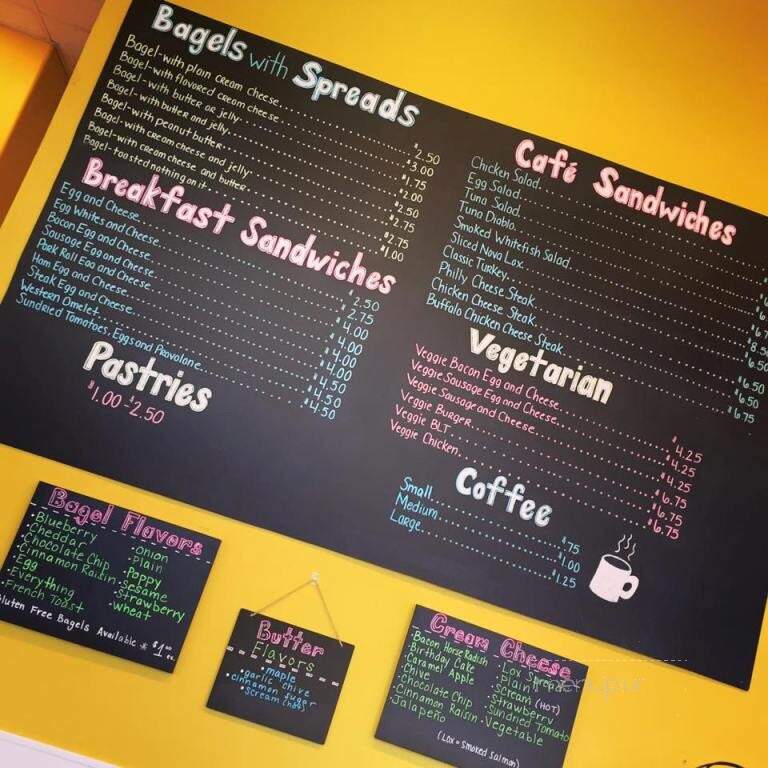 Bagels with Spreads
Bagel-with plain cream cheese 2.50
Bagel-with flavored cream cheese 3.00
Bagel-with butter or jelly 1.75
Bagel-with butter and jelly 2.00
Bagel-with peanut butter 2.50
Bagel-with cream cheese and jelly 2.75
Bagel-with cream cheese and butter 2.75
Bagel-toasted nothing on it 1.00
Breakfast Sandwiches
Egg and Cheese 2.50
Egg Whites and Cheese 2.75
Bacon Egg and Cheese 4.00
Sausage Egg and Cheese 4.00
Pork Roll Egg and Cheese 4.00
Ham Egg and Cheese 4.00
Steak Egg and Cheese 4.50
Western Omelet 4.50
Sundried Tomatoes, Eggs and Provolone 4.50
Pastries
$1.00-$2.50
Café Sandwiches
Chicken Salad
Egg Salad
Tuna Salad
Tuna Diablo
Smoked Whitefish Salad
Sliced Nova Lox
Classic Turkey
Philly Cheese Steak 6.50
Chicken Cheese Steak 6.50
Buffalo Chicken Cheese Steak 6.75
Vegetarian
Veggie Bacon Egg and Cheese 4.25
Veggie Sausage Egg and Cheese 4.25
Veggie Sausage and Cheese 4.25
Veggie Burger 6.75
Veggie BLT 6.75
Veggie Chicken 6.75
Coffee
Small .75
Medium 1.00
Large 1.25
Bagel Flavors
Blueberry
Cheddar
Chocolate Chip
Cinnamon Raisin
Egg
Everything
French Toast
Onion
Plain
Poppy
Sesame
Strawberry
Wheat
Gluten Free Bagels Available * $1.00
Butter
Flavors
maple
garlic chive
cinnamon suger
scream (hot)
Cream Cheese
Bacon Horse Radish
Birthday Cake
Caramel Apple
Chive
Chocolate Chip
Cinnamon Raisin
Jalapeño
Lox Spread
Plain
Scream (HOT)
Strawberry
Sundried Tomato
Vegetable
(Lox = Smoked Salmon)